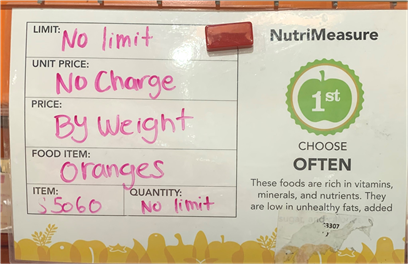 LIMIT: No limit
UNIT PRICE:
No Charge
PRICE:
By Weight
FOOD ITEM:
Oranges
ITEM: QUANTITY:
j5060 No limit
NutriMeasure
1st
CHOOSE
OFTEN
These foods are rich in vitamins,
minerals, and nutrients. They
are low in unhealthy fats, added